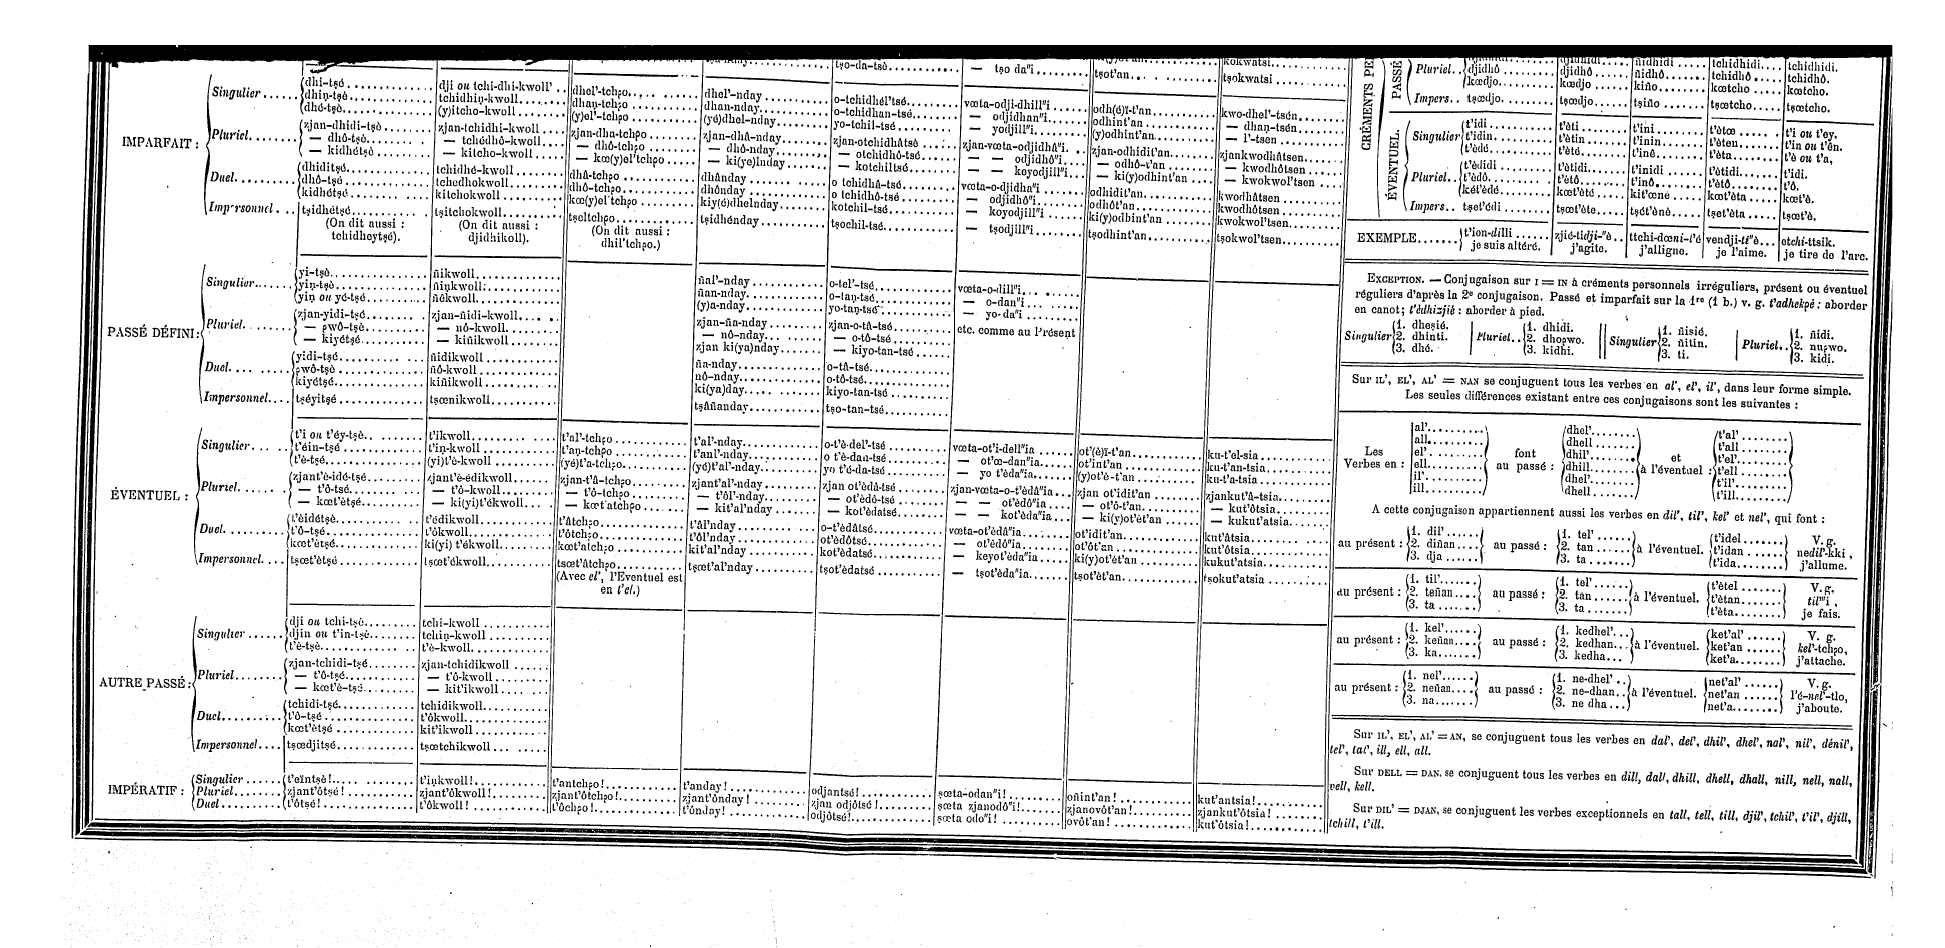 IMPARFAIT :
Singulier
dhi-tṣé
dhiṇ-tṣè
dhé-tṣè
dji ou tchi-dhi-kwoll'
tchidhiṇ-kwoll
(y)itcho-kwoll
dhel'-tchρo
dhaṇ-tchρo
(y)el'-tchρo
dhel'-nday
dhan-nday
(yé)dhel-nday
tṣo-da-tsè
o-tchidhél'tsé
o-tchidhan-tsé
yo-tchil-tsé
— tṣo daⁿi
vœta-odji-dhillⁿi
— odjidhanⁿi
— yodjillⁿi
tṣot'an
odh(é)ï-t'an
odhint'an
(y)odhint'an
tṣokwatsi
kwo-dhel'-tsén
— dhaṇ-tsén
— l'-tsen
Pluriel
zjan-dhidi-tṣè
— dhô-tṣè
— kidhétṣè
zjan-tchidhi-kwoll
— tchédhô-kwoll
— kitcho-kwoll
zjan-dha-tchρo
— dhô-tchρo
— kœ(y)el'tchρo
zjan-dhâ-nday
— dhô-nday
— ki(ye)lnday
zjan-otchidhâtsè
— otchidhô-tsé
— kotchiltsé
zjan-vœta-odjidhâⁿi
— — odjidhôⁿi
— — koyodjillⁿi
zjan-odhidit'an
— odhô-t'an
— ki(y)odhint'an
zjankwodhâtsen
— kwodhôtsen
— kwokwol'tsen
Duel
dhiditṣé
dhô-tṣé
kidhétṣé
tchidhé-kwoll
tchedhokwoll
kitchokwoll
dhâ-tchρo
dhô-tchρo
kœ(y)el'tchρo
dhânday
dhônday
kiy(é)dhelnday
o tchidhâ-tsé
o tchidhô-tsé
kotchil-tsé
vœta-o-djidhaⁿi
— odjidhôⁿi
— koyodjillⁿi
odhidit'an
odhôt'an
ki(y)odhint'an
kwodhâtsen
kwodhôtsen
kwokwol'tsen
Impersonnel
tṣidhétṣé
(On dit aussi :
tchidheytṣé).
tṣitchokwoll
(On dit aussi :
djidhikoll).
tṣeltchρo
(On dit aussi :
dhil'tchρo.)
tṣidhénday
tṣochil-tsé
— tṣodjillⁿi
tṣodhint'an
tṣokwol'tsen
PASSÉ DÉFINI :
Singulier
yi-tṣè
yiṇ-tṣè
yiṇ ou yé-tṣé
ñikwoll
ñiṇkwoll
ñékwoll
ñal'-nday
ñan-nday
(y)a-nday
o-tel'-tsé
o-taṇ-tsé
yo-taṇ-tsé
vœta-o-dillⁿi
— o-danⁿi
— yo-daⁿi
Pluriel
zjan-yidi-tṣè
— ρwô-tṣè
— kiyétṣé
zjan-ñidi-kwoll
— nô-kwoll
— kiñikwoll
zjan-ña-nday
— nô-nday
zjan ki(ya)nday
zjan-o-tâ-tsé
— o-tô-tsé
— kiyo-tan-tsé
etc. comme au Présent
Duel
yidi-tṣé
ρwô-tṣè
kiyétṣé
ñidikwoll
ñô-kwoll
kiñikwoll
ña-nday
nô-nday
ki(ya)day
o-tâ-tsé
o-tô-tsé
kiyo-tan-tsé
Impersonnel
tṣéyitṣé
tṣœnikwoll
tṣâñanday
tṣo-tan-tsé
ÉVENTUEL :
Singulier
t'i ou t'éy-tṣè
t'éin-tṣé
t'è-tṣé
t'ikwoll
t'iṇ-kwoll
(yi)t'è-kwoll
t'al'-tchρo
t'aṇ-tchρo
(yé)t'a-tchρo
t'al'-nday
t'anl'-nday
(yé)t'al'-nday
o-t'è-del'-tsé
o t'é-dan-tsé
yo t'é-da-tsé
vœta-ot'i-dellⁿia
— ot'œ-danⁿia
— yo t'èdaⁿia
ot'(è)ï-t'an
ot'int'an
(y)ot'è-t'an
ku-t'el-sia
ku-t'an-tsia
ku-t'a-tsia
Pluriel
zjant'è-idé-tṣè
— t'ô-tsé
— kœt'ètṣé
zjant'è-édikwoll
— t'ô-kwoll
— ki(yi)t'ékwoll
zjan-t'â-tchρo
— t'ô-tchρo
— kœt'atchρo
zjant'al'-nday
— t'ôl'-nday
— kit'al'nday
zjan ot'èdâ-tsé
— ot'èdô-tsé
— kot'èdatsé
zjan-vœta-o-t'èdâⁿia
— — ot'èdôⁿia
— — kot'èdaⁿia
zjan ot'idit'an
— ot'ô-t'an
— ki(y)ot'èt'an
zjankut'â-tsia
— kut'ôtsia
— kukut'atsia
Duel
t'èidétṣè
t'ô-tṣé
kœt'ètṣé
t'édikwoll
t'ôkwoll
ki(yi) t'ékwoll
t'âtchρo
t'ôtchρo
kœt'alchρo
t'âl'nday
t'ôl'nday
kit'al'nday
o-t'èdâtsé
ot'èdôtsé
kot'èdatsé
vœta-ot'èdâⁿia
— ot'èdôⁿia
— keyot'èdaⁿia
ot'idit'an
ot'ôt'an
ki(y)ot'èt'an
kut'âtsia
kut'ôtsia
kukut'atsia
Impersonnel
tṣœt'ètṣé
tṣœt'ékwoll
tsœt'âtchρo
(Avec el', l'Eventuel est
en t'el.)
tṣœt'al'nday
tṣot'èdatsé
— tṣot'èdaⁿia
tṣot'èt'an
tṣokut'atsia
AUTRE PASSÉ :
Singulier
dji ou tchi-tṣè
djin ou t'in-tṣè
t'è-tṣè
tchi-kwoll
tchiṇ-kwoll
t'è-kwoll
Pluriel
zjan-tchidi-tṣé
— t'ô-tṣé
— kœt'è-tṣé
zjan-tchidikwoll
— t'ô-kwoll
— kit'ikwoll
Duel
tchidi-tṣé
t'ô-tṣé
kœt'ètṣé
tchidikwoll
t'ôkwoll
kit'ikwoll
Impersonnel
tṣœdjitṣé
tṣœtchikwoll
IMPÉRATIF :
Singulier
Pluriel
Duel
t'eïntṣè !
zjant'ôtṣé !
t'ôtsé !
t'iṇkwoll !
zjant'ôkwoll !
t'ôkwoll !
t'antchρo !
zjant'ôtchρo !
t'ôchρo !
t'anday !
zjant'ônday !
t'ônday !
odjantsé !
zjan odjôtsé !
odjôtsé !
ṣœta-odanⁿi !
ṣœta zjanodôⁿi !
ṣœta odoⁿi !
oñint'an !
zjanovôt'an !
ovôt'an !
kut'antsia !
zjankut'ôtsia !
kut'ôtsia !
CRÉMENTS PE
PASSÉ
Pluriel
djidhô
kœdjo
djidhô
kœdjo
ñidhidi
ñidhô
kiño
tchidhidi
tchidhô
kœtcho
tchidhidi.
tchidhô.
kœtcho.
Impers.
tṣœdjo
tṣœdjo
tṣiño
tṣœtcho
tṣœtcho.
ÉVENTUEL
Singulier
t'idi
t'idin
t'èdé
t'èti
t'ètin
t'èté
t'ini
t'inin
t'inê
t'ètœ
t'èten
t'èta
t'i ou t'ey.
t'in ou t'ên.
t'è ou t'a,
Pluriel
t'èdidi
t'èdô
két'èdé
t'ètidi
t'ètô
kœt'èté
t'inidi
t'inô
kit'œné
t'ètidi
t'ètô
kœt'èta
t'idi.
t'ô.
kœt'è.
Impers.
tṣet'édi
tṣœt'ète
tṣét'ènè
tṣet'èta
tṣœt'è.
EXEMPLE
t'ion-dilli
je suis altéré.
zjié-tidji-ⁿè
j'agite.
ttchi-dœni-l'é
j'alligne.
vendji-tiⁿè
je l'aime.
etchi-ttsik.
je tire de l'arc.
EXCEPTION. — Conjugaison sur I = IN à créments personnels irréguliers, présent ou éventuel
réguliers d'après la 2e conjugaison. Passé et imparfait sur la 1re (1 b.) v. g. t'adhekρé : aborder
en canot; t'èdhizjié : aborder à pied.
Singulier
1. dheṣié.
2. dhinti.
3. dhé.
Pluriel
1. dhidi.
2. dhoρwo.
3. kidhi.
Singulier
1. ñisié.
2. ñitin.
3. ti.
Pluriel
1. ñidi.
2. nuρwo.
3. kidi.
Sur IL', EL', AL' = NAN se conjuguent tous les verbes en al', el', il', dans leur forme simple.
Les seules différences existant entre ces conjugaisons sont les suivantes :
Les
Verbes en :
al'
all
el'
ell
il'
ill
font
au passé :
dhel'
dhell
dhil'
dhill
dhel'
dhell
et
à l'éventuel :
t'al'
t'all
t'el'
t'ell
t'il'
t'ill
A cette conjugaison appartiennent aussi les verbes en dil', til', kel' et nel', qui font :
au présent :
1. dil'
2. diñan
3. dja
au passé :
1. tel'
2. tan
3. ta
à l'éventuel
t'idel
t'idan
t'ida
V. g.
nedil'-kki,
j'allume.
au présent :
1. til'
2. teñan
3. ta
au passé :
1. tel'
2. tan
3. ta
à l'éventuel.
t'ètel
t'ètan
t'èta
V. g,
til'ⁿi,
je fais.
au présent :
1. kel'
2. keñan
3. ka
au passé :
1. kedhel'
2. kedhan
3. kedha
à l'éventuel.
ket'al'
ket'an
ket'a
V. g.
kel'-tchρo,
j'attache.
au présent :
1. nel'
2. neñan
3. na
au passé :
1. ne-dhel'
2. ne-dhan
3. ne dha
à l'éventuel.
net'al'
net'an
net'a
V. g.
l'é-nel'-tlo,
j'aboute.
Sur IL', EL', AL' = AN, se conjuguent tous les verbes en dal', del', dhil', dhel', nal', nil', dénil',
tel', tal', ill, ell, all.
Sur DELL = DAN. se conjuguent tous les verbes en dill, dall, dhill, dhell, dhall, nill, nell, nall,
vell, kell.
Sur DIL' = DJAN, se conjuguent les verbes exceptionnels en tall, tell, till, djil', tchil', t'il', djill,
tchill, t'ill.